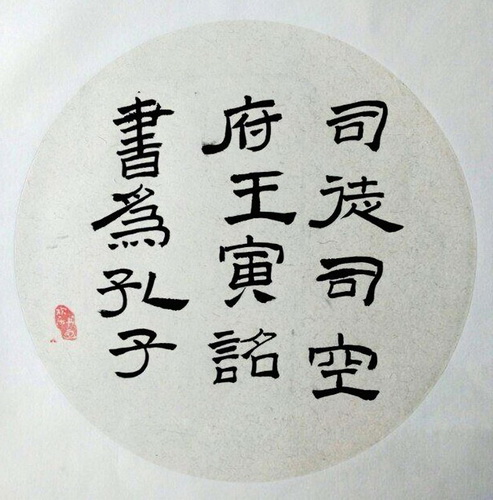 司徒司空
府王寅詔
書爲孔子